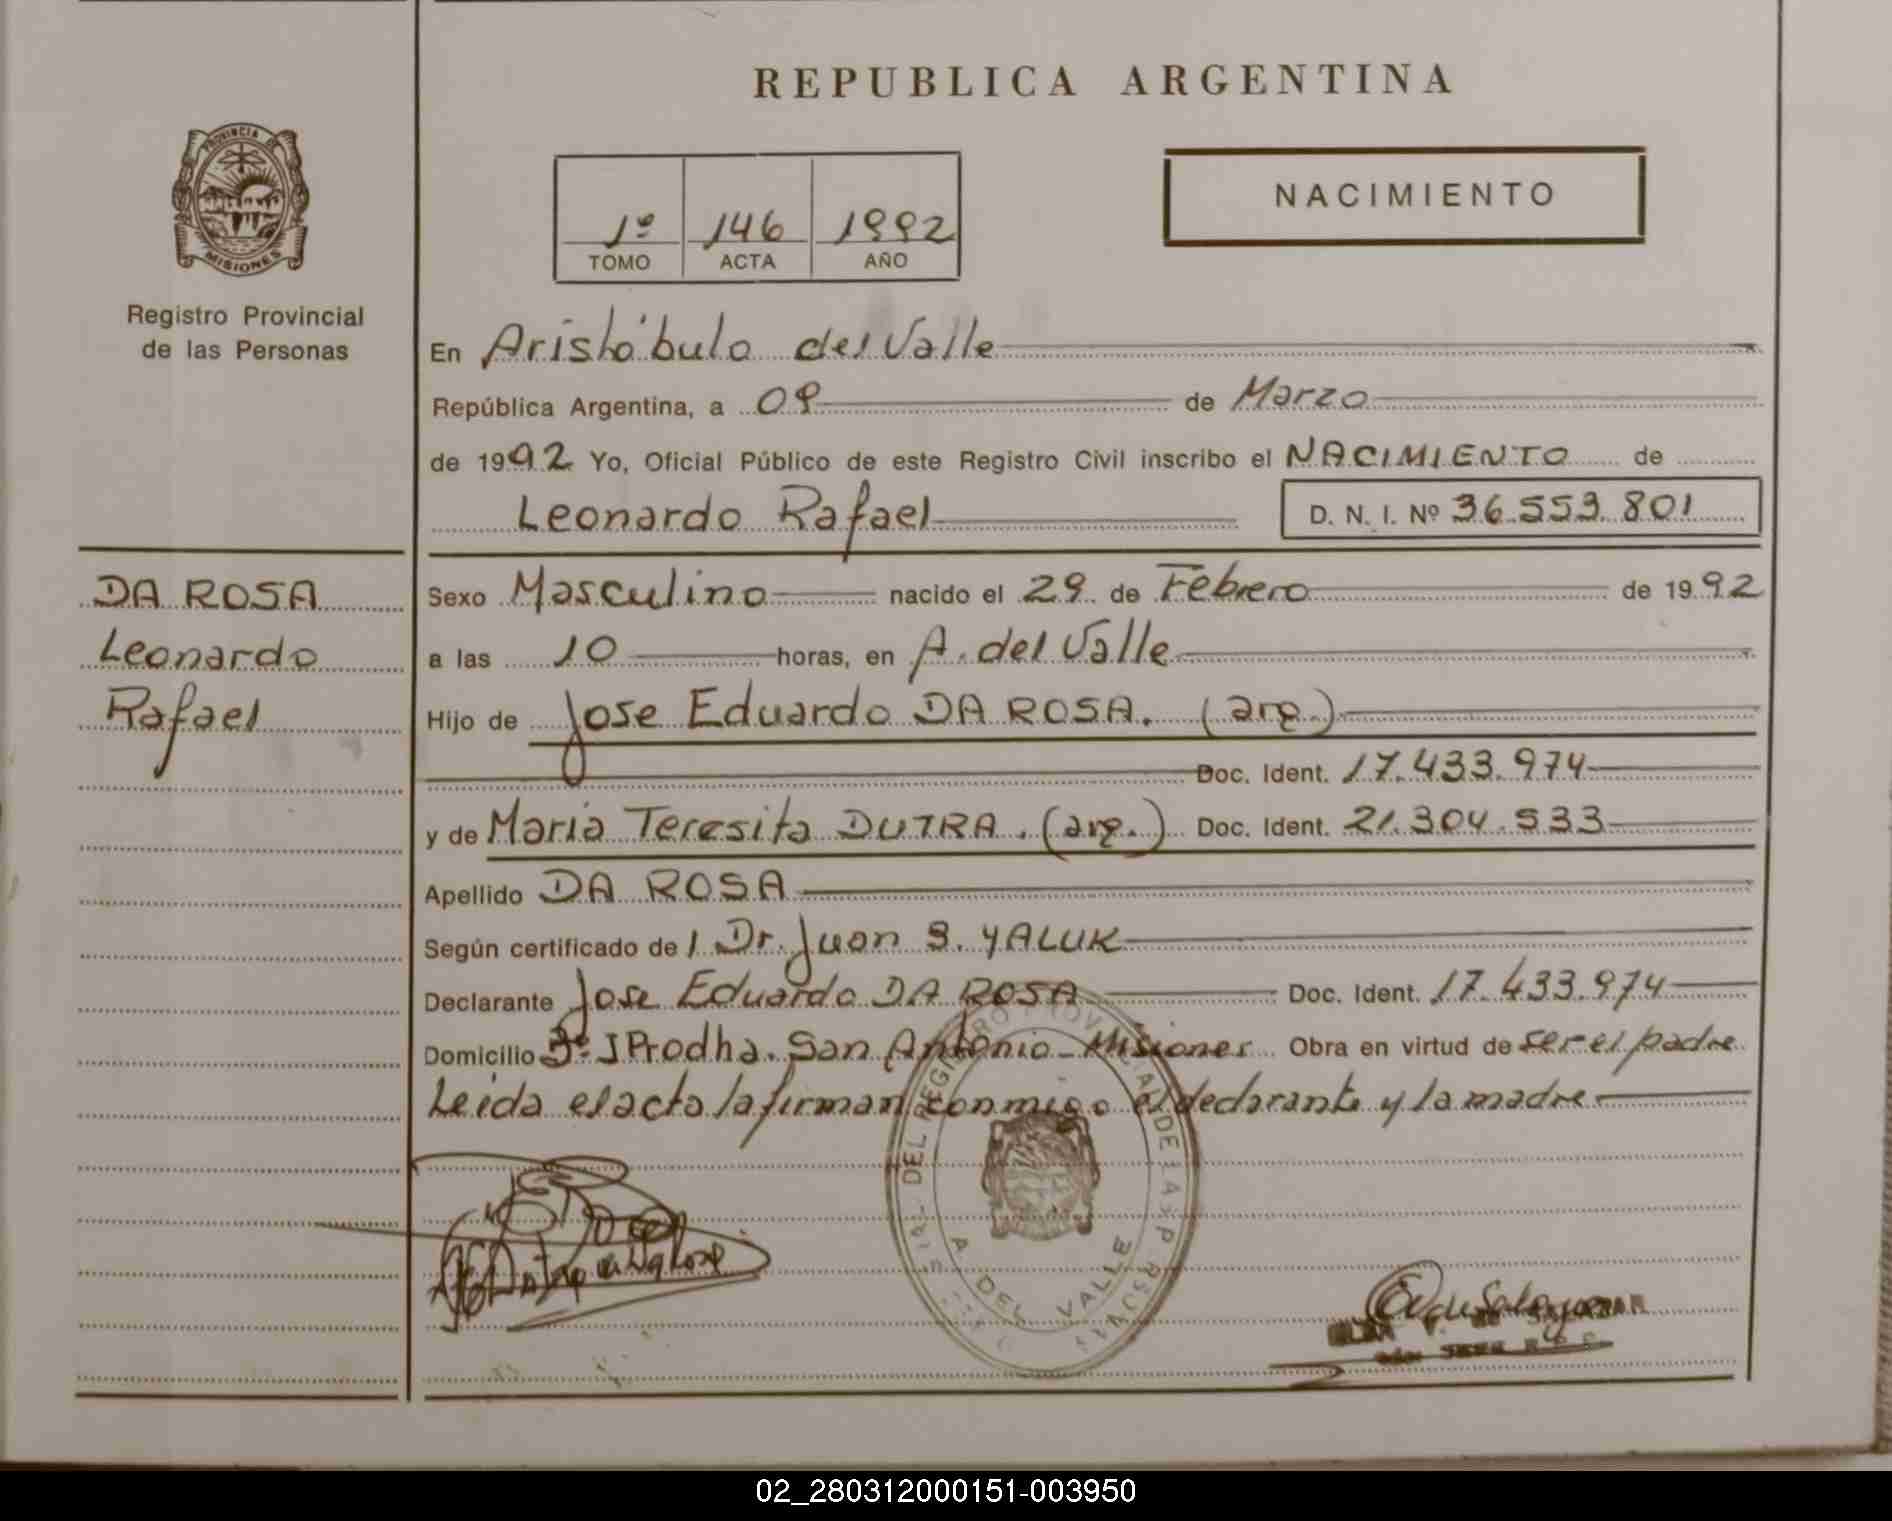 REPUBLICA ARGENTINA
PROVINCIA DE
MISIONES
Registro Provincial
de las Personas
NACIMIENTO
1º 146 1992
TOMO ACTA AÑO
En Aristóbulo del Valle
República Argentina, a 09 de Marzo
de 1992 Yo, Oficial Público de este Registro Civil inscribo el NACIMIENTO de
Leonardo Rafael D. N. I. Nº 36.553.801
DA ROSA
Leonardo
Rafael
Sexo Masculino nacido el 29 de Febrero de 1992
a las 10 horas, en A. del Valle
Hijo de Jose Eduardo DA ROSA. (arg.)
Doc. Ident. 17.433.974
y de Maria Teresita DUTRA. (arg.) Doc. Ident. 21.304.533
Apellido DA ROSA
Según certificado de 1 Dr. Juan S. YALUK
Declarante Jose Eduardo DA ROSA Doc. Ident. 17.433.974
Domicilio San Antonio - Misiones Obra en virtud de ser el padre
Leida el acta la firman conmigo el declarante y la madre
DEL REGISTRO PROVINCIAL DE LAS PERSONAS
A. DEL VALLE
02_280312000151-003950